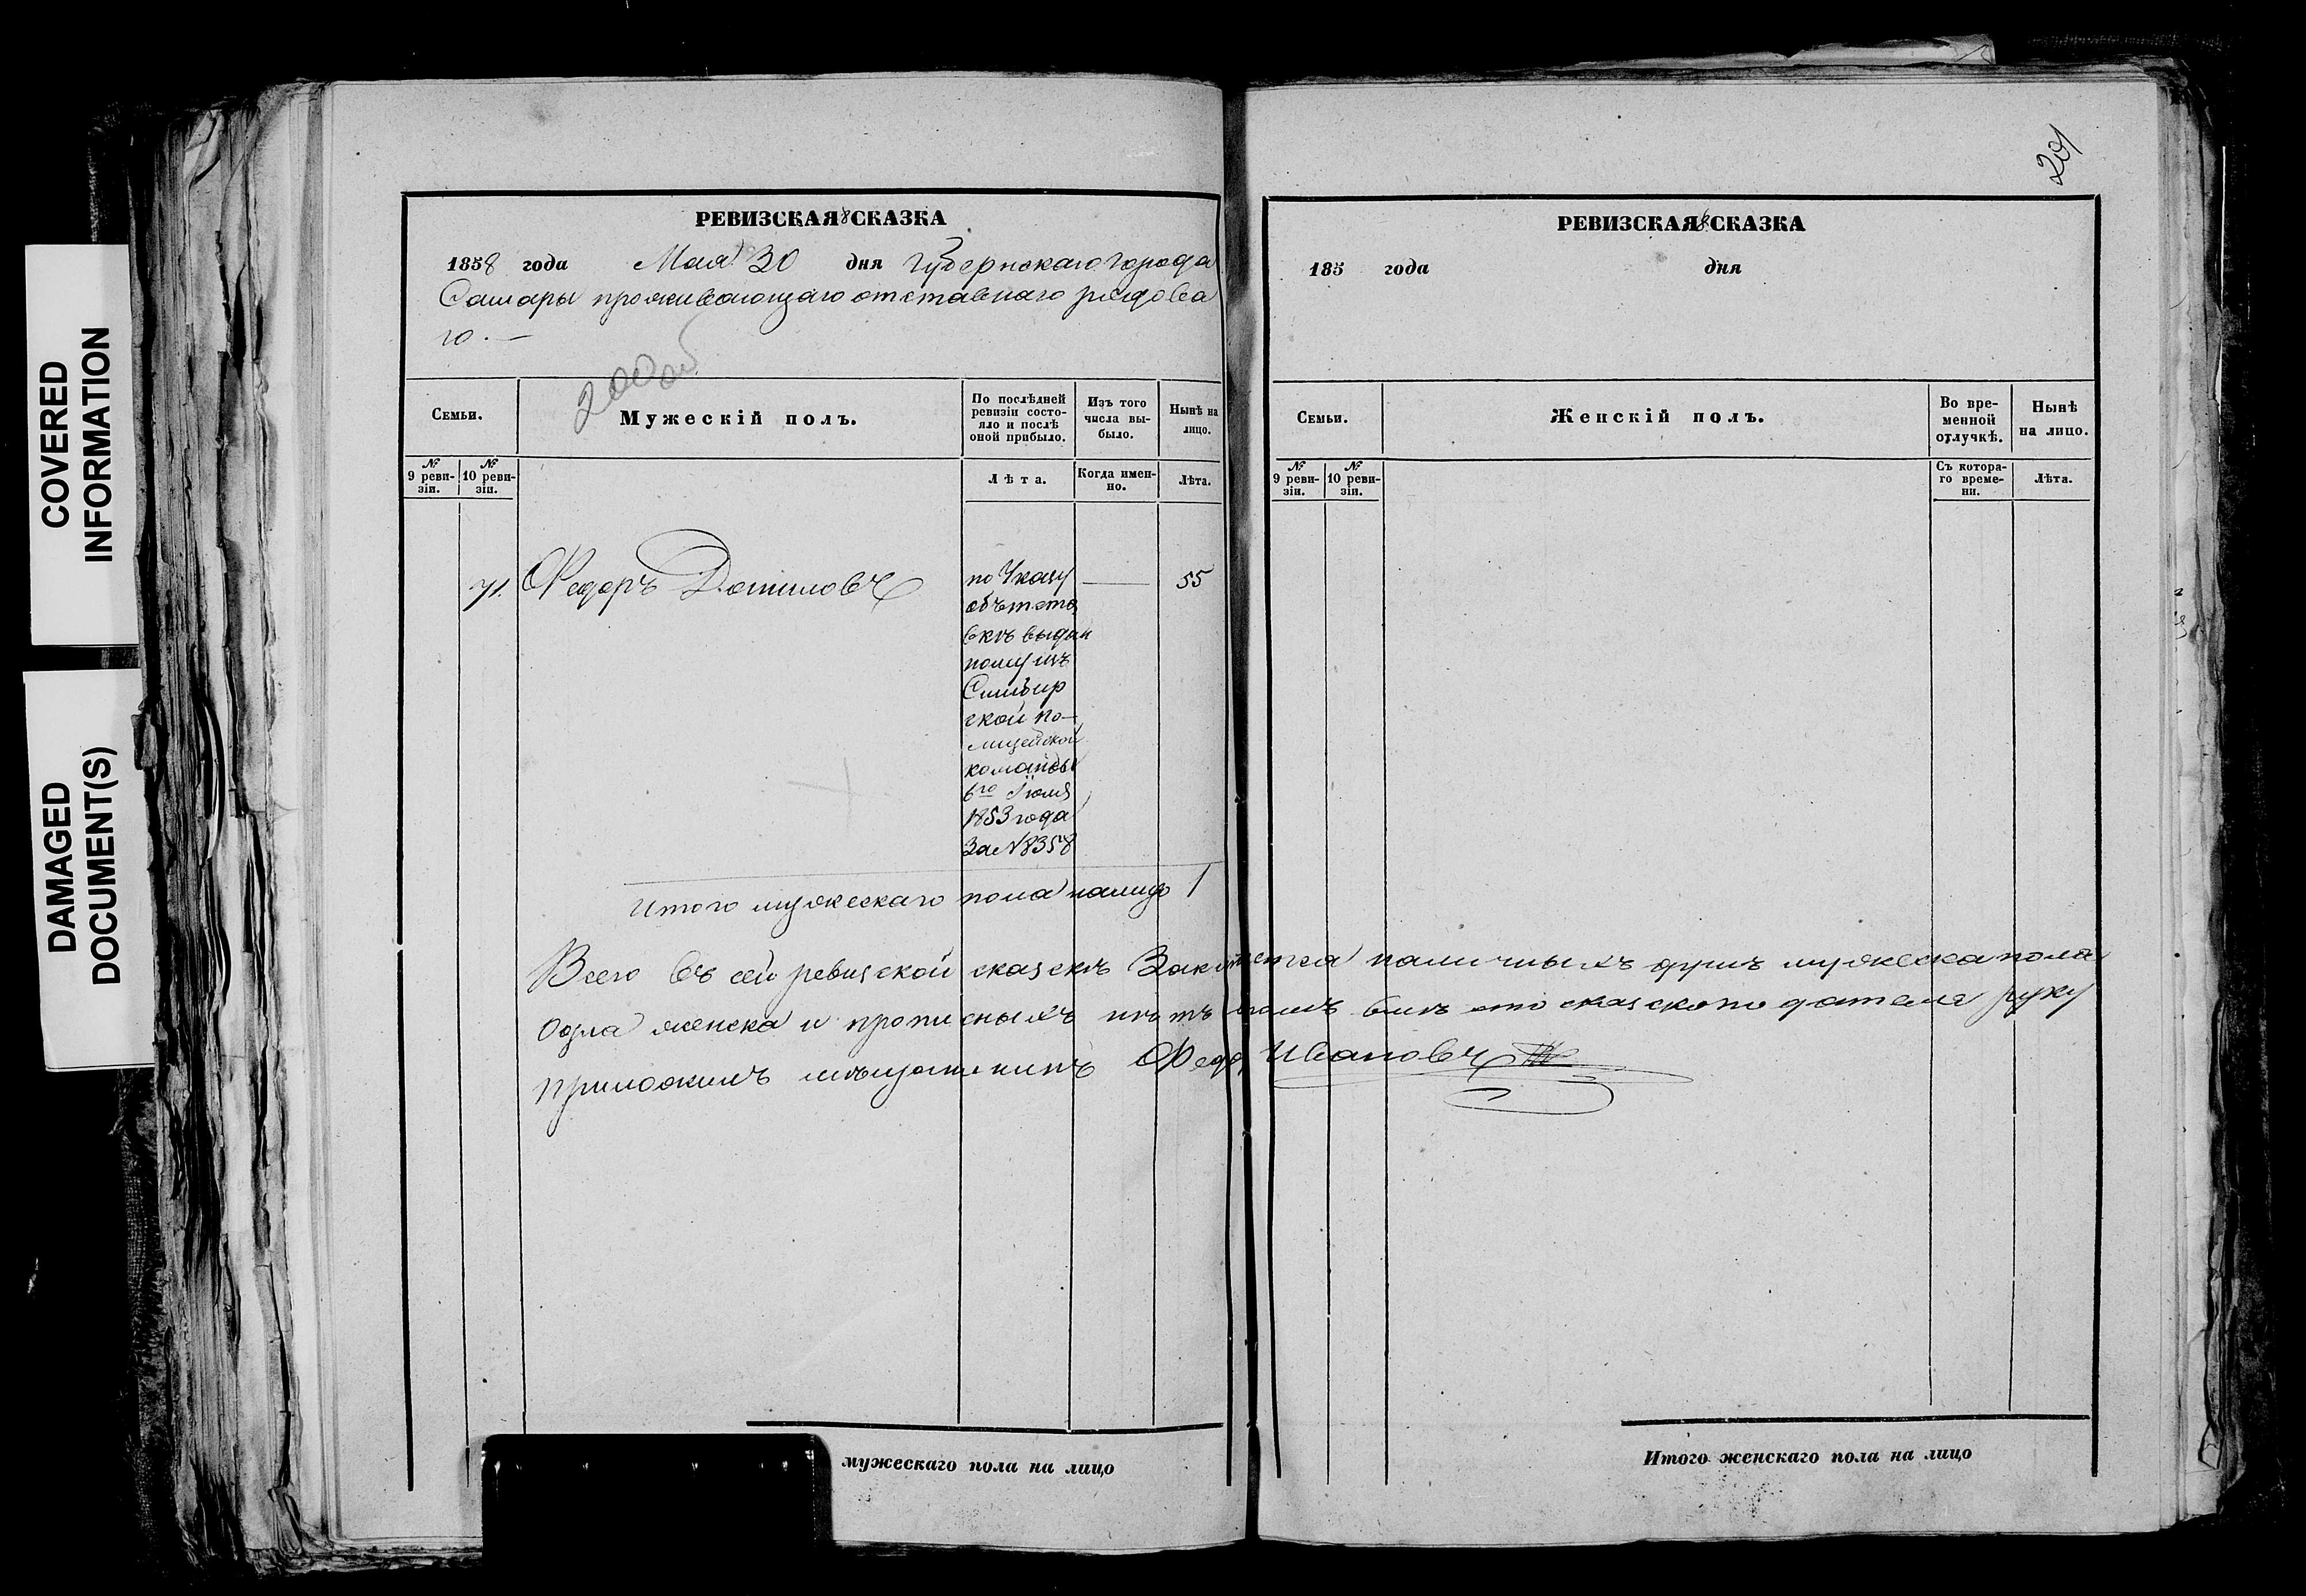 COVERED
INFORMATION
DAMAGED
DOCUMENT(S)
РЕВИЗСКАЯ СКАЗКА
1858 года Мая 30 дня губернскаго города
Самары проживающаго отставнаго рядова
го. —
200 об
Семьи.
Мужескій полъ.
По послѣдней
ревизіи состо-
яло и послѣ
оной прибыло.
Изъ того
числа вы-
было.
Нынѣ на
лицо.
№
9 реви-
зіи.
№
10 реви-
зіи.
Лѣта.
Когда имен-
но.
Лѣта.
71. Федоръ Даниловъ
по Указу
объ отста
вкѣ выдан
ному изъ
Симбир
ской по-
лицейской
команды
6го Іюля
1853 года
За № 8358
—
55
Итого мужескаго пола налицо 1
Всего въ сей ревизской сказкѣ Заключается наличныхъ душъ мужеска пола
Одна женска и прописныхъ нѣтъ сказкоподателя руку
приложилъ мѣщанинъ Федоръ Ивановъ
мужескаго пола на лицо
201
РЕВИЗСКАЯ СКАЗКА
185 года дня
Семьи.
Женскій полъ.
Во вре-
менной
отлучкѣ.
Нынѣ
на лицо.
№
9 реви-
зіи.
№
10 реви-
зіи.
Съ котора-
го време-
ни.
Лѣта.
Итого женскаго пола на лицо